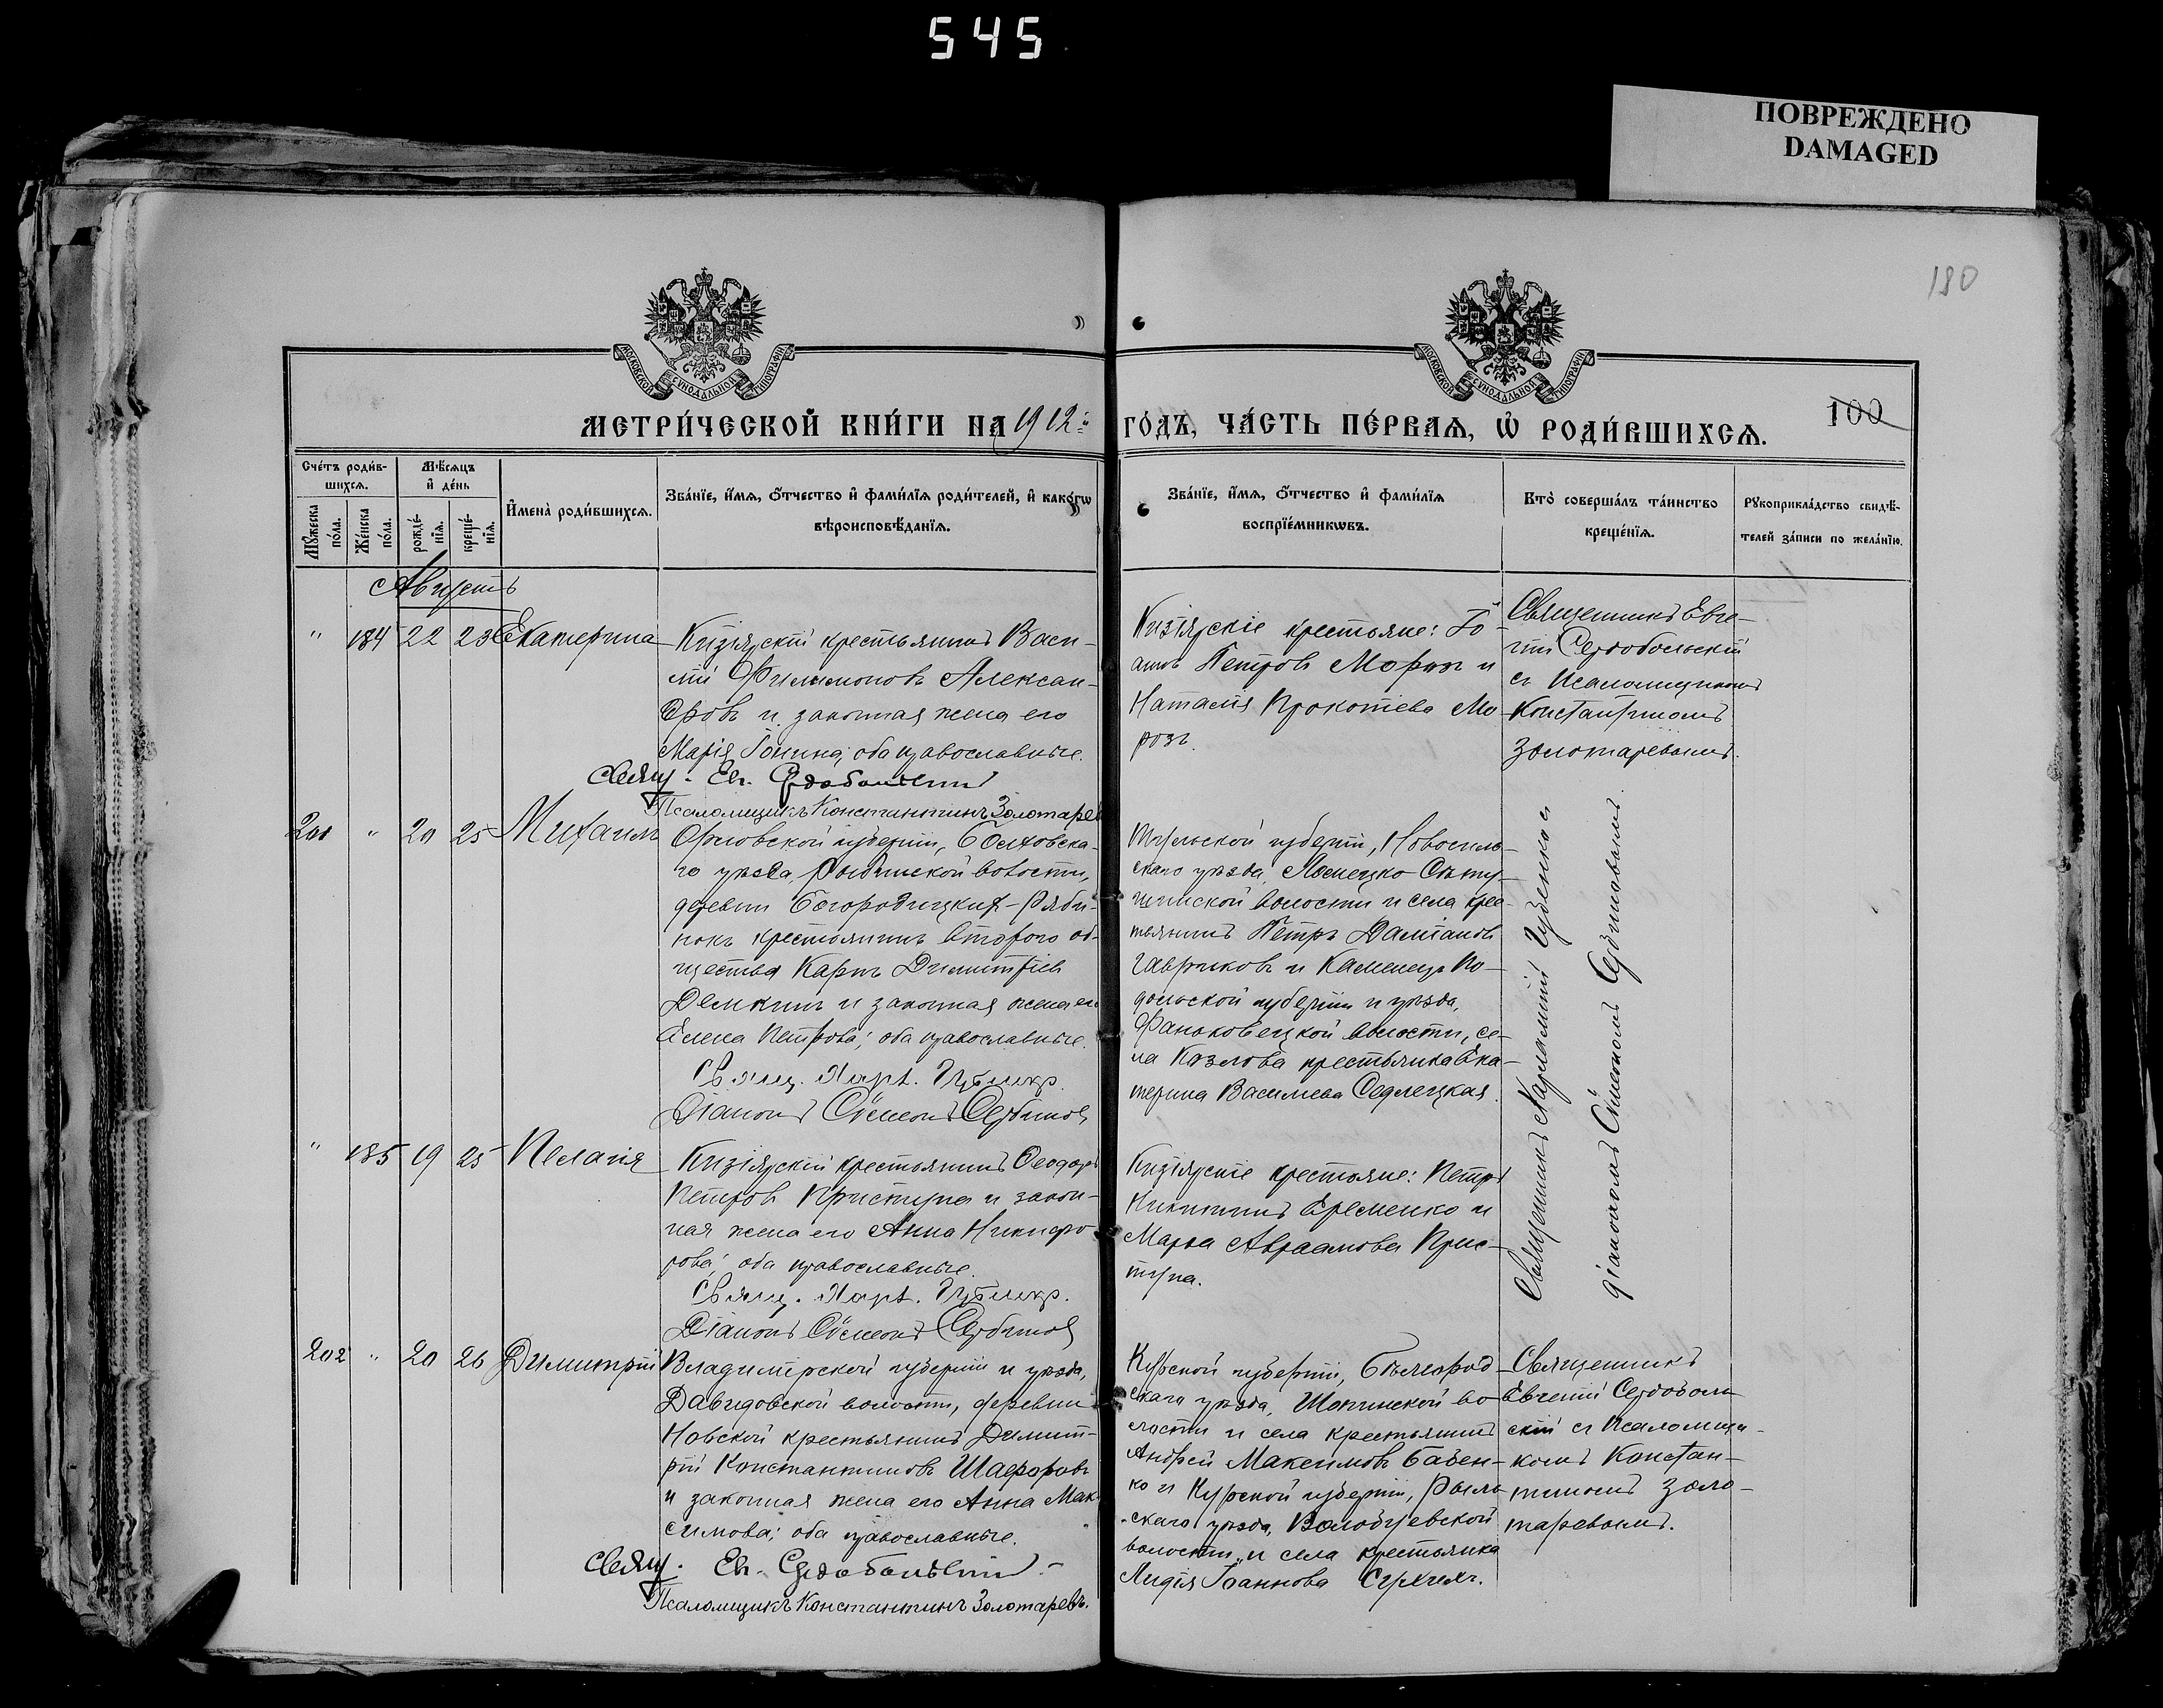 545
ПОВРЕЖДЕНО
DAMAGED
180
МОСКОВСКОЙ СѴНОДАЛЬНОЙ ТИПОГРАФІИ
МОСКОВСКОЙ СѴНОДАЛЬНОЙ ТИПОГРАФІИ
МЕТРИ́ЧЕСКОЙ КНИ́ГИ НА 1912й
ГО́ДЪ, ЧА́СТЬ ПЕ́РВАѦ, Ѡ РОДИ́ВШИХСѦ.
100
Сче́тъ роди́в-
шихсѧ.
Мꙋжеска по́ла.
Же́нска по́ла.
Мѣ́сѧцъ
и де́нь
рожде́-
нїѧ.
креще́-
нїѧ.
И҆мена̀ роди́вшихсѧ.
Зва́нїе, и҆́мѧ, ѻ҆́тчество и҆ фами́лїѧ роди́телей, и҆ како́гѡ
вѣроисповѣ́данїѧ.
Зва́нїе, и҆́мѧ, ѻ҆́тчество и҆ фами́лїѧ
воспрїе́мникѡвъ.
Кто̀ соверша́лъ та́инство
креще́нїѧ.
Рꙋкоприкла́дство свидѣ́-
телей за́писи по жела́нїю.
Августъ
" 184 22 23 Екатерина
Кизіярскій крестьянинъ Васи-
лій Филимоновъ Алексан-
дровъ и законная жена его
Марія Іонина; оба православные.
Свящ. Ев. Сердобольскій
Псаломщикъ Константинъ Золотарев
Кизіярскіе крестьяне: Іо-
аннъ Петровъ Морозъ и
Наталія Прокопіева Мо
розъ.
Священникъ Евге-
ній Сердобольскій
съ Псаломщикомъ
Константиномъ
Золотаревымъ.
201 " 20 25 Михаилъ
Орловской губерніи, Болховска-
го уѣзда, волости,
деревни Богородицкихъ-Ряби-
нокъ крестьянинъ второго об-
щества Карпъ Димитріев
Демкинъ и законная жена его
Елена Петрова; оба православные.
Свящ. Харл.
Діаконъ Сѵмеонъ Сербиновъ
Тульской губерніи, Новосиль-
скаго уѣзда,
волости и села крес-
тьянинъ Петръ Даміановъ
Гавриковъ и Каменецъ По-
дольской губерніи и уѣзда,
волости, се-
ла Козлова крестьянка Ека-
терина Васильева Седлецкая.
Священникъ Харлампій Губенко съ
діакономъ Сѵмеономъ Сербиновымъ.
" 185 19 25 Пелагія
Кизіярскій крестьянинъ Ѳеодоръ
Петровъ Приступа и закон-
ная жена его Анна Никифо-
рова; оба православные.
Свящ. Харл.
Діаконъ Сѵмеонъ Сербиновъ
Кизіярскіе крестьяне: Петръ
Никитинъ Еременко и
Марѳа Авраамова Прис-
тупа.
202 " 20 26 Димитрій
Владимірской губерніи и уѣзда,
Давидовской волости, деревни
Новской крестьянинъ Димит-
рій Константиновъ Шафоровъ
и законная жена его Анна Мак-
симова; оба православные.
Свящ. Ев. Сердобольскій.
Псаломщикъ Константинъ Золотаревъ.
Курской губерніи, Бѣлгород-
скаго уѣзда, Шопинской во-
лости и села крестьянинъ
Андрей Максимовъ Бабен-
ко и Курской губерніи, Рыль-
скаго уѣзда,
волости и села крестьянка
Лидія Іоаннова
Священникъ
Евгеній Сердоболь-
скій съ Псаломщи-
комъ Констан-
тиномъ Золо-
таревымъ.